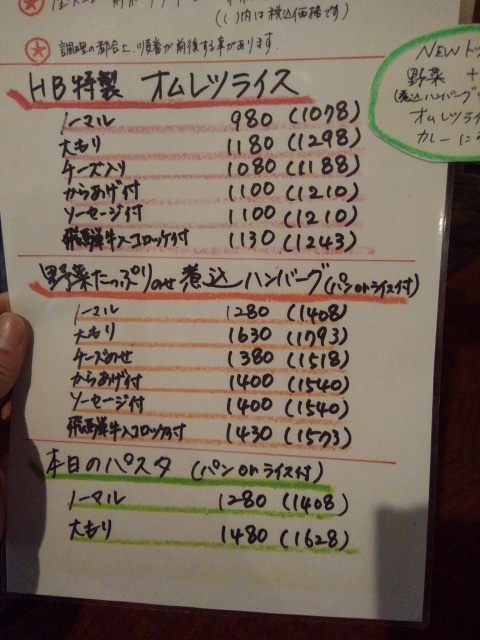 (( )内は税込価格です)
調理の都合上、順番が前後する事があります。
HB特製 オムレツライス
ノーマル 980 (1078)
大もり 1180 (1298)
チーズ入り 1080 (1188)
からあげ付 1100 (1210)
ソーセージ付 1100 (1210)
飛騨牛入コロッケ付 1130 (1243)
野菜たっぷりのせ煮込ハンバーグ(パンorライス付)
ノーマル 1280 (1408)
大もり 1630 (1793)
チーズのせ 1380 (1518)
からあげ付 1400 (1540)
ソーセージ付 1400 (1540)
飛騨牛入コロッケ付 1430 (1573)
本日のパスタ (パンorライス付)
ノーマル 1280 (1408)
大もり 1480 (1628)
NEWト
野菜 +
(煮込ハンバーグ
オムレツライ
カレーに